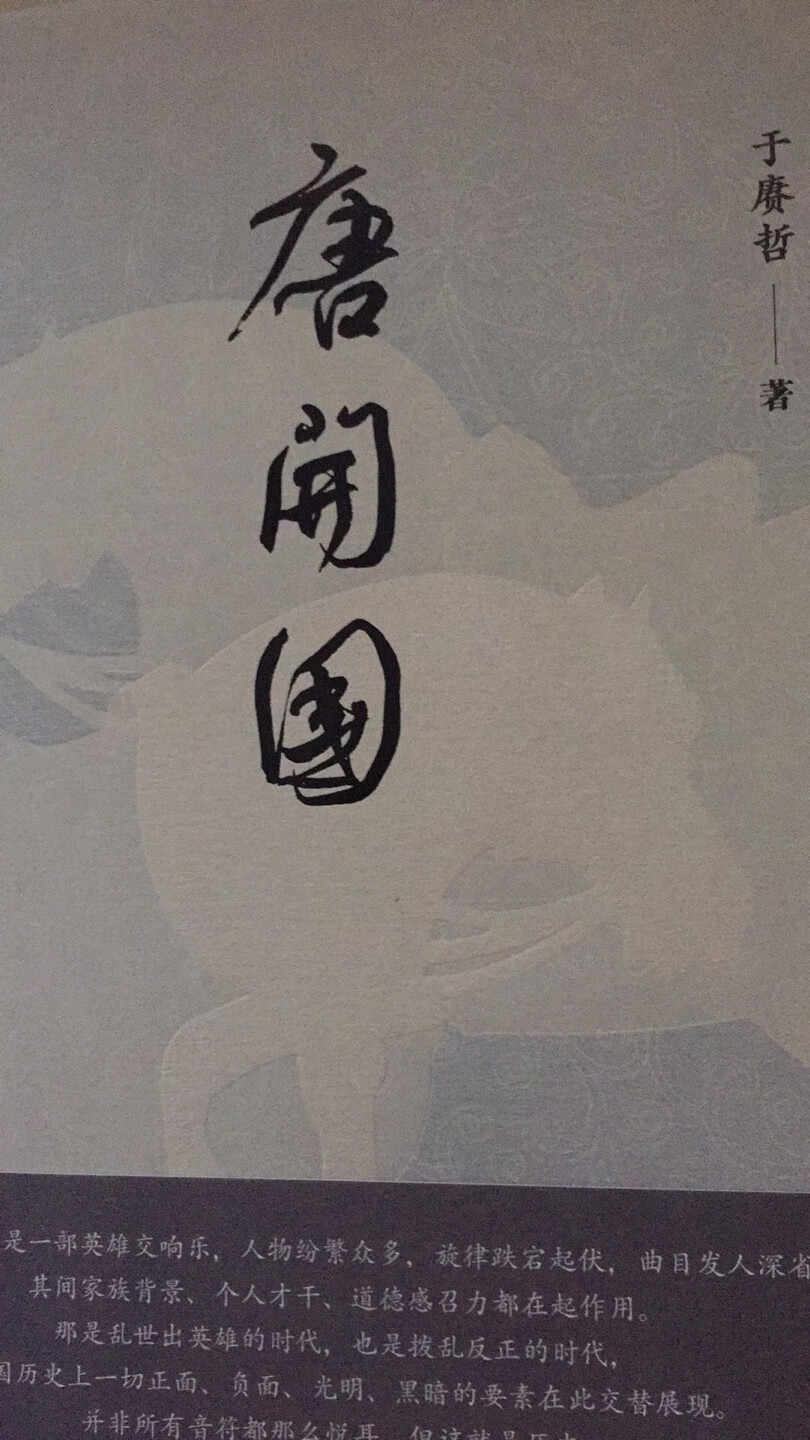 于赓哲——著
唐開國
是一部英雄交响乐，人物纷繁众多，旋律跌宕起伏，曲目发人深省
其间家族背景、个人才干、道德感召力都在起作用。
那是乱世出英雄的时代，也是拨乱反正的时代，
国历史上一切正面、负面、光明、黑暗的要素在此交替展现。
并非所有音符都那么悦耳，但这就是历史